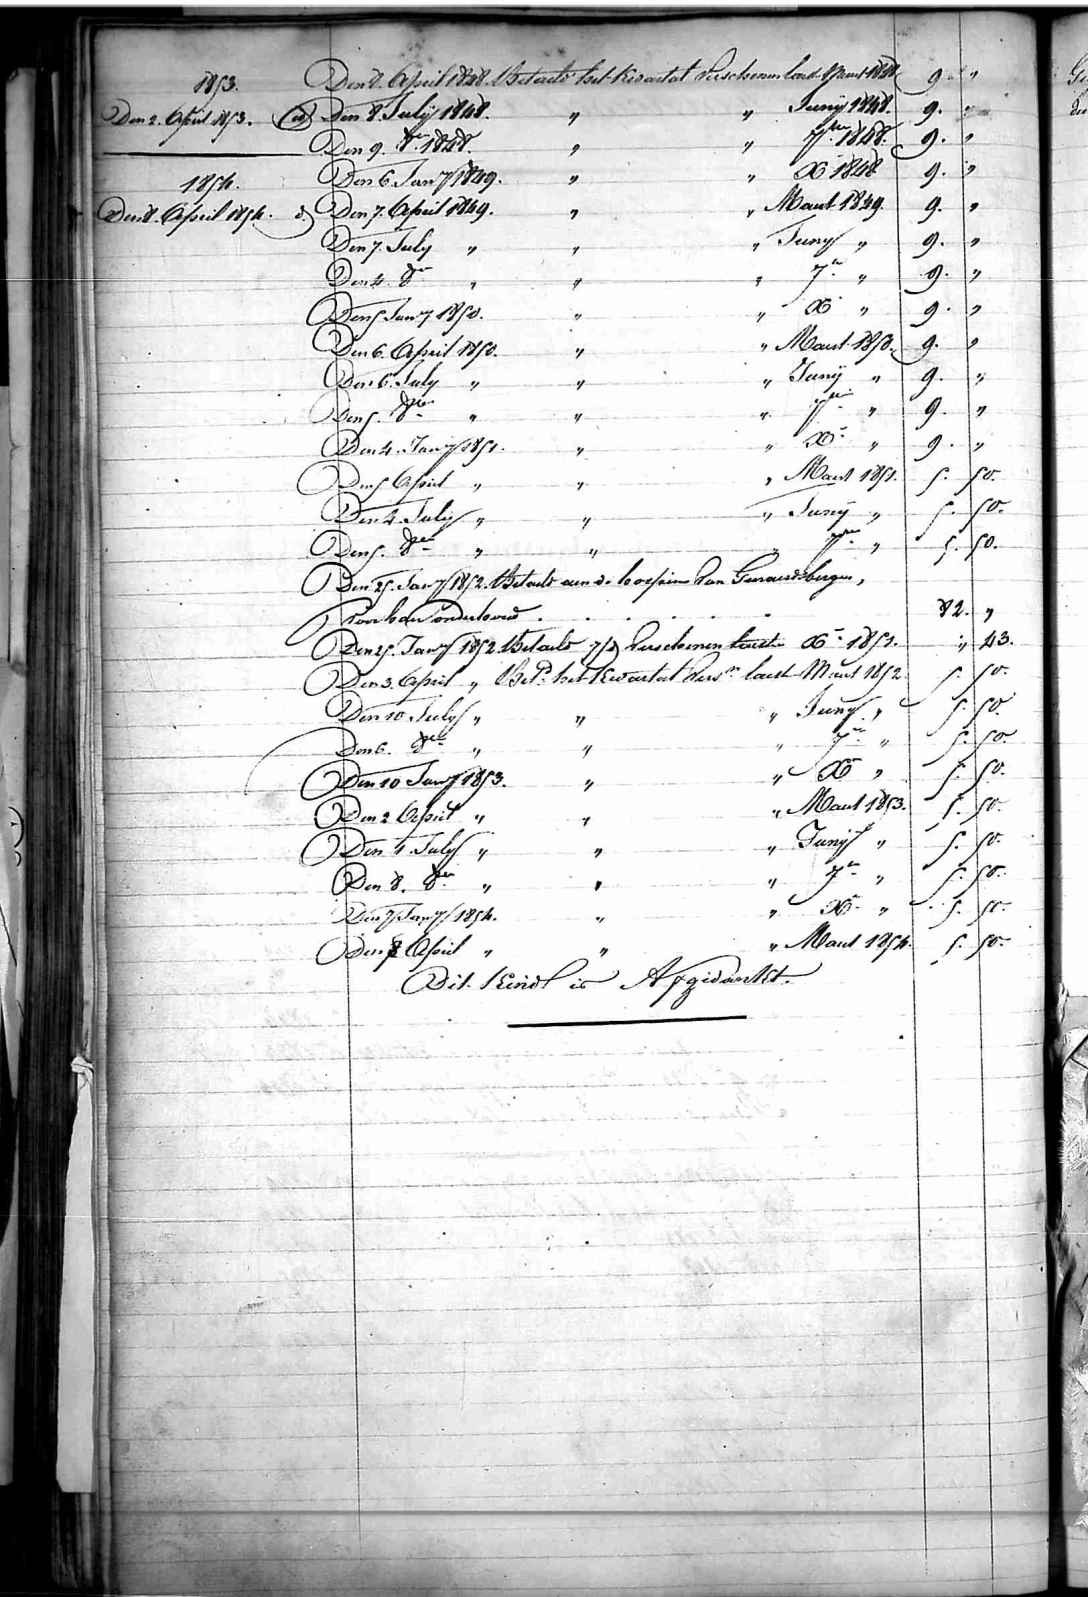 1853.
Den 2. April 1853.
1854.
Den 8. April 1854.
Den 8. April 1848. Betaelt het Kwartal Verschenen laest Maert 1848 9. "
Den 8. July 1848. " " Juny 1848. 9. "
Den 9. 8er 1848. " " 7er 1848. 9. "
Den 6. Jany 1849. " " Xr 1848 9. "
Den 7. April 1849. " " Maert 1849. 9. "
Den 7. July " " " Juny " 9. "
Den 4. 8er " " " 7er " 9. "
Den 5 Jany 1850. " " Xr " 9. "
Den 6. April 1850. " " Maert 1850. 9. "
Den 6. July " " " Juny " 9. "
Den 5. 8er " " " 7er " 9. "
Den 4. Jany 1851. " " Xr " 9. "
Den 5 April " " " Maert 1851. 5. 50.
Den 4 July " " " Juny " 5. 50.
Den 5. 8er " " " 7er " 5. 50.
Den 25. Jany 1852. Betaelt aen de Van Geeraerdsbergen,
Voor haer onderhoud . . . . . . 82. "
Den 25. Jany 1852 Betaelt Verschenen laest Xr 1851. " 43.
Den 3. April " Bet. het Kwartal Vers. laest Maert 1852 5. 50.
Den 10 July " " " Juny " 5. 50.
Den 6. 8er " " " 7er " 5. 50.
Den 10 Jany 1853. " " Xr " 5. 50.
Den 2 April " " " Maert 1853. 5. 50.
Den July " " " Juny " 5. 50.
Den 8. 8er " " " 7er " 5. 50.
Den 7 Jany 1854. " " Xr " 5. 50.
Den 8 April " " " Maert 1854. 5. 50.
Dit Kind is Afgedankt.